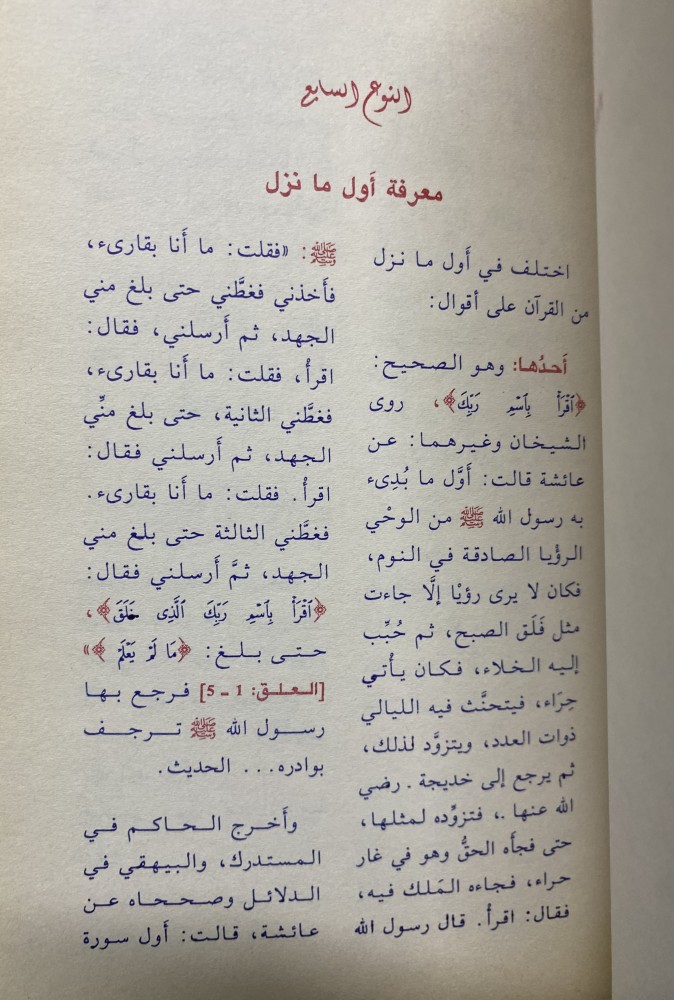 النوع السابع
معرفة أَول ما نزل
اختلف في أَول ما نزل
من القرآن على أقوال:
أَحدُها: وهو الصحيح:
﴿ٱقۡرَأۡ بِٱسۡمِ رَبِّكَ﴾، روى
الشيخان وغيرهما: عن
عائشة قالت: أَوَّل ما بُدِىء
به رسول الله ﷺ من الوحْي
الرؤْيا الصادقة في النوم،
فكان لا يرى رؤيْا إلَّا جاءت
مثل فَلَق الصبح، ثم حُبِّب
إليه الخلاء، فكان يأْتي
حِرَاء، فيتحنَّث فيه الليالي
ذوات العدد، ويتزوَّد لذلك،
ثم يرجع إلى خديجة ـ رضي
الله عنها ـ، فتزوِّده لمثلها،
حتى فجأَه الحقُّ وهو في غار
حراء، فجاءه المَلك فيه،
فقال: اقرأُ. قال رسول الله
ﷺ: «فقلت: ما أَنا بقارىء،
فأَخذني فغطَّني حتى بلغ مني
الجهد، ثم أَرسلني، فقال:
اقرأُ، فقلت: ما أَنا بقارىء،
فغطَّني الثانية، حتى بلغ منِّي
الجهد، ثم أَرسلني فقال:
اقرأُ. فقلت: ما أَنا بقارىء.
فغطَّني الثالثة حتى بلغ مني
الجهد، ثمَّ أَرسلني فقال:
﴿ٱقۡرَأۡ بِٱسۡمِ رَبِّكَ ٱلَّذِى خَلَقَ﴾،
حتى بلغ: ﴿مَا لَمۡ يَعۡلَمۡ﴾»
[العلق: 1 ـ 5] فرجع بها
رسول الله ﷺ ترجف
بوادره... الحديث.
وأَخرج الحاكم في
المستدرك، والبيهقي في
الدلائل وصححاه عن
عائشة، قالت: أَول سورة